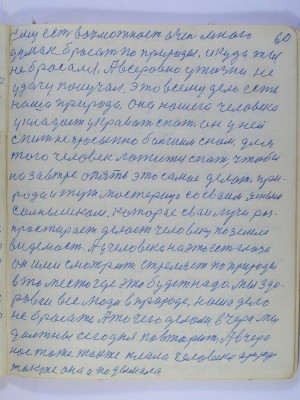 60
ему есть возможност очен много
думак бросат по природы, и куда ж мы
не бросам, А всеровно у жизни не
удачу получал. Это всему дело есть
наша природа. она нашего человека
укладает управат спат. он у ней
спит не просыпно большим сном, для
того человек ложится спат, чтобы
на завтре опять это самое делат. при-
рода и тут мастерица со своим
солнышком. которае сваи лучи рас-
простирает делает человеку по земле
видемост. А у человека на это ест глаза
он ими смотрит стреляет по природе
в то место где это будет надо. Мы здо-
ровыи все люди в природе, наше дело
не бросат. А то чего делали вчера мы
должны сегодня повторит, А вчера
нас тоже также клала человека
также она и подымала